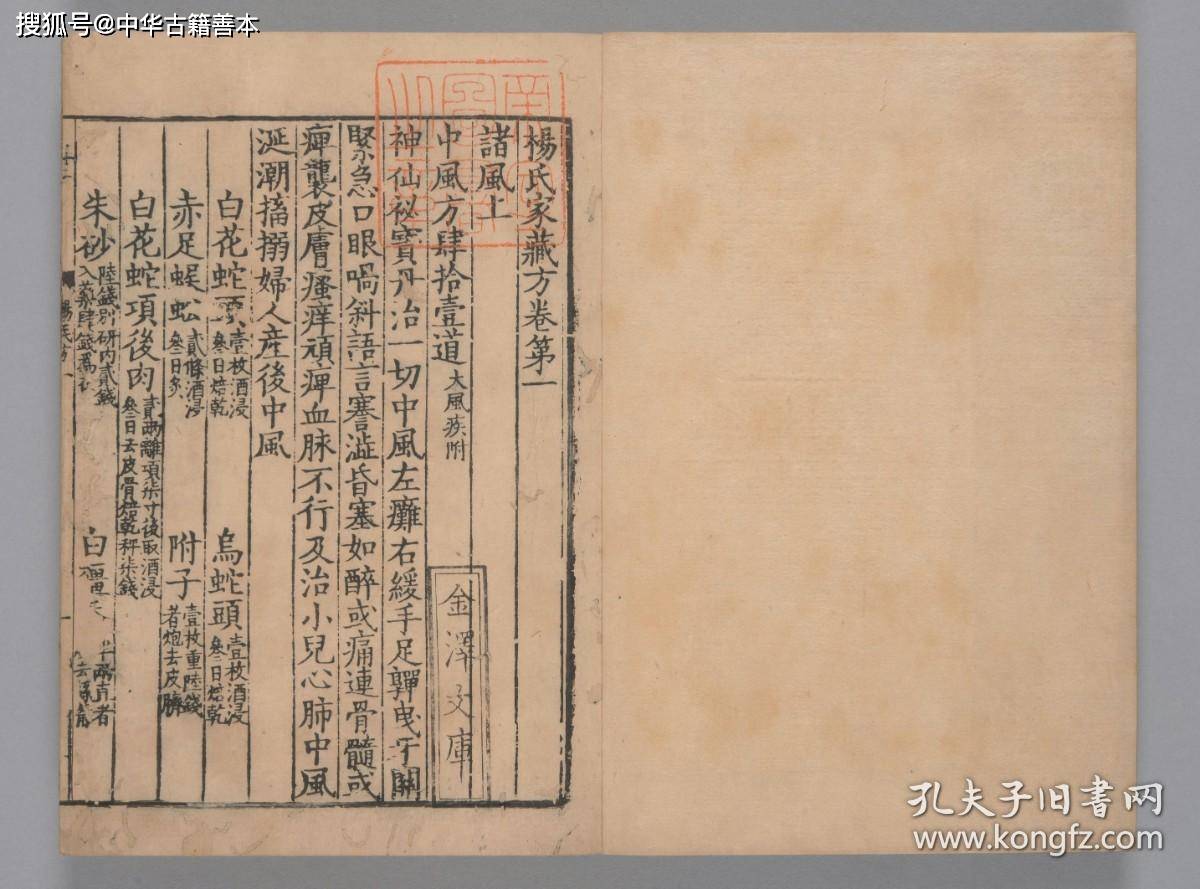 搜狐号@中华古籍善本
楊氏家藏方卷第一
諸風上
中風方肆拾壹道 大風疾附
神仙祕寶丹治一切中風左癱右緩手足嚲曳牙關
緊急口眼喎斜語言謇澁昏塞如醉或痛連骨髓或
痹襲皮膚瘙痒頑痹血脉不行及治小兒心肺中風
涎潮搐搦婦人産後中風
白花蛇頭 壹枚酒浸叄日焙乾 烏蛇頭 壹枚酒浸叄日焙乾
赤足蜈蚣 貳條酒浸叄日炙 附子 壹枚重陸錢者炮去皮臍
白花蛇項後肉 貳兩離項柒寸後取酒浸叄日去皮骨焙乾秤柒錢
朱砂 陸錢別研内貳錢入藥肆錢爲衣 白 半兩直者
金澤文庫
孔夫子旧书网
www.kongfz.com